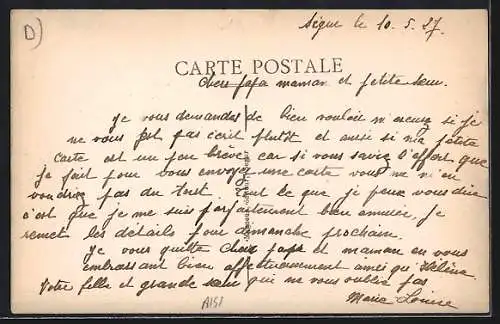 D)
Ségur le 10.5.27.
CARTE POSTALE
Chers papa maman et petite sœur.
Je vous demandes de bien vouloir m'excusez si je
ne vous pas écrit plutôt et aussi si ma petite
carte est un peu brève car si vous saviez l'effort que
je fait pour vous envoyez une carte vous ne m'en
voudriez pas du tout. Tout ce que je peux vous dire
c'est que je me suis parfaitement bien amusée, je
remet les détails pour dimanche prochain.
Je vous quitte cher papa et maman en vous
embrassant bien affectueusement ainsi qu'Hélène.
Votre fille et grande sœur qui ne vous oublie pas
Marie Louise
A151